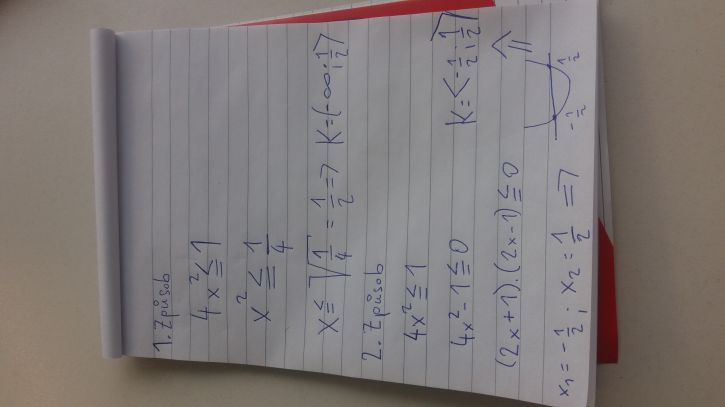 1. Způsob
4x² ≤ 1
x² ≤ 1/4
x ≤ √(1/4) = 1/2 => K = (-∞; 1/2>
2. Způsob
4x² ≤ 1
4x² - 1 ≤ 0
(2x+1).(2x-1) ≤ 0
x₁ = -1/2; x₂ = 1/2 =>
-1/2 1/2
K = <-1/2; 1/2>